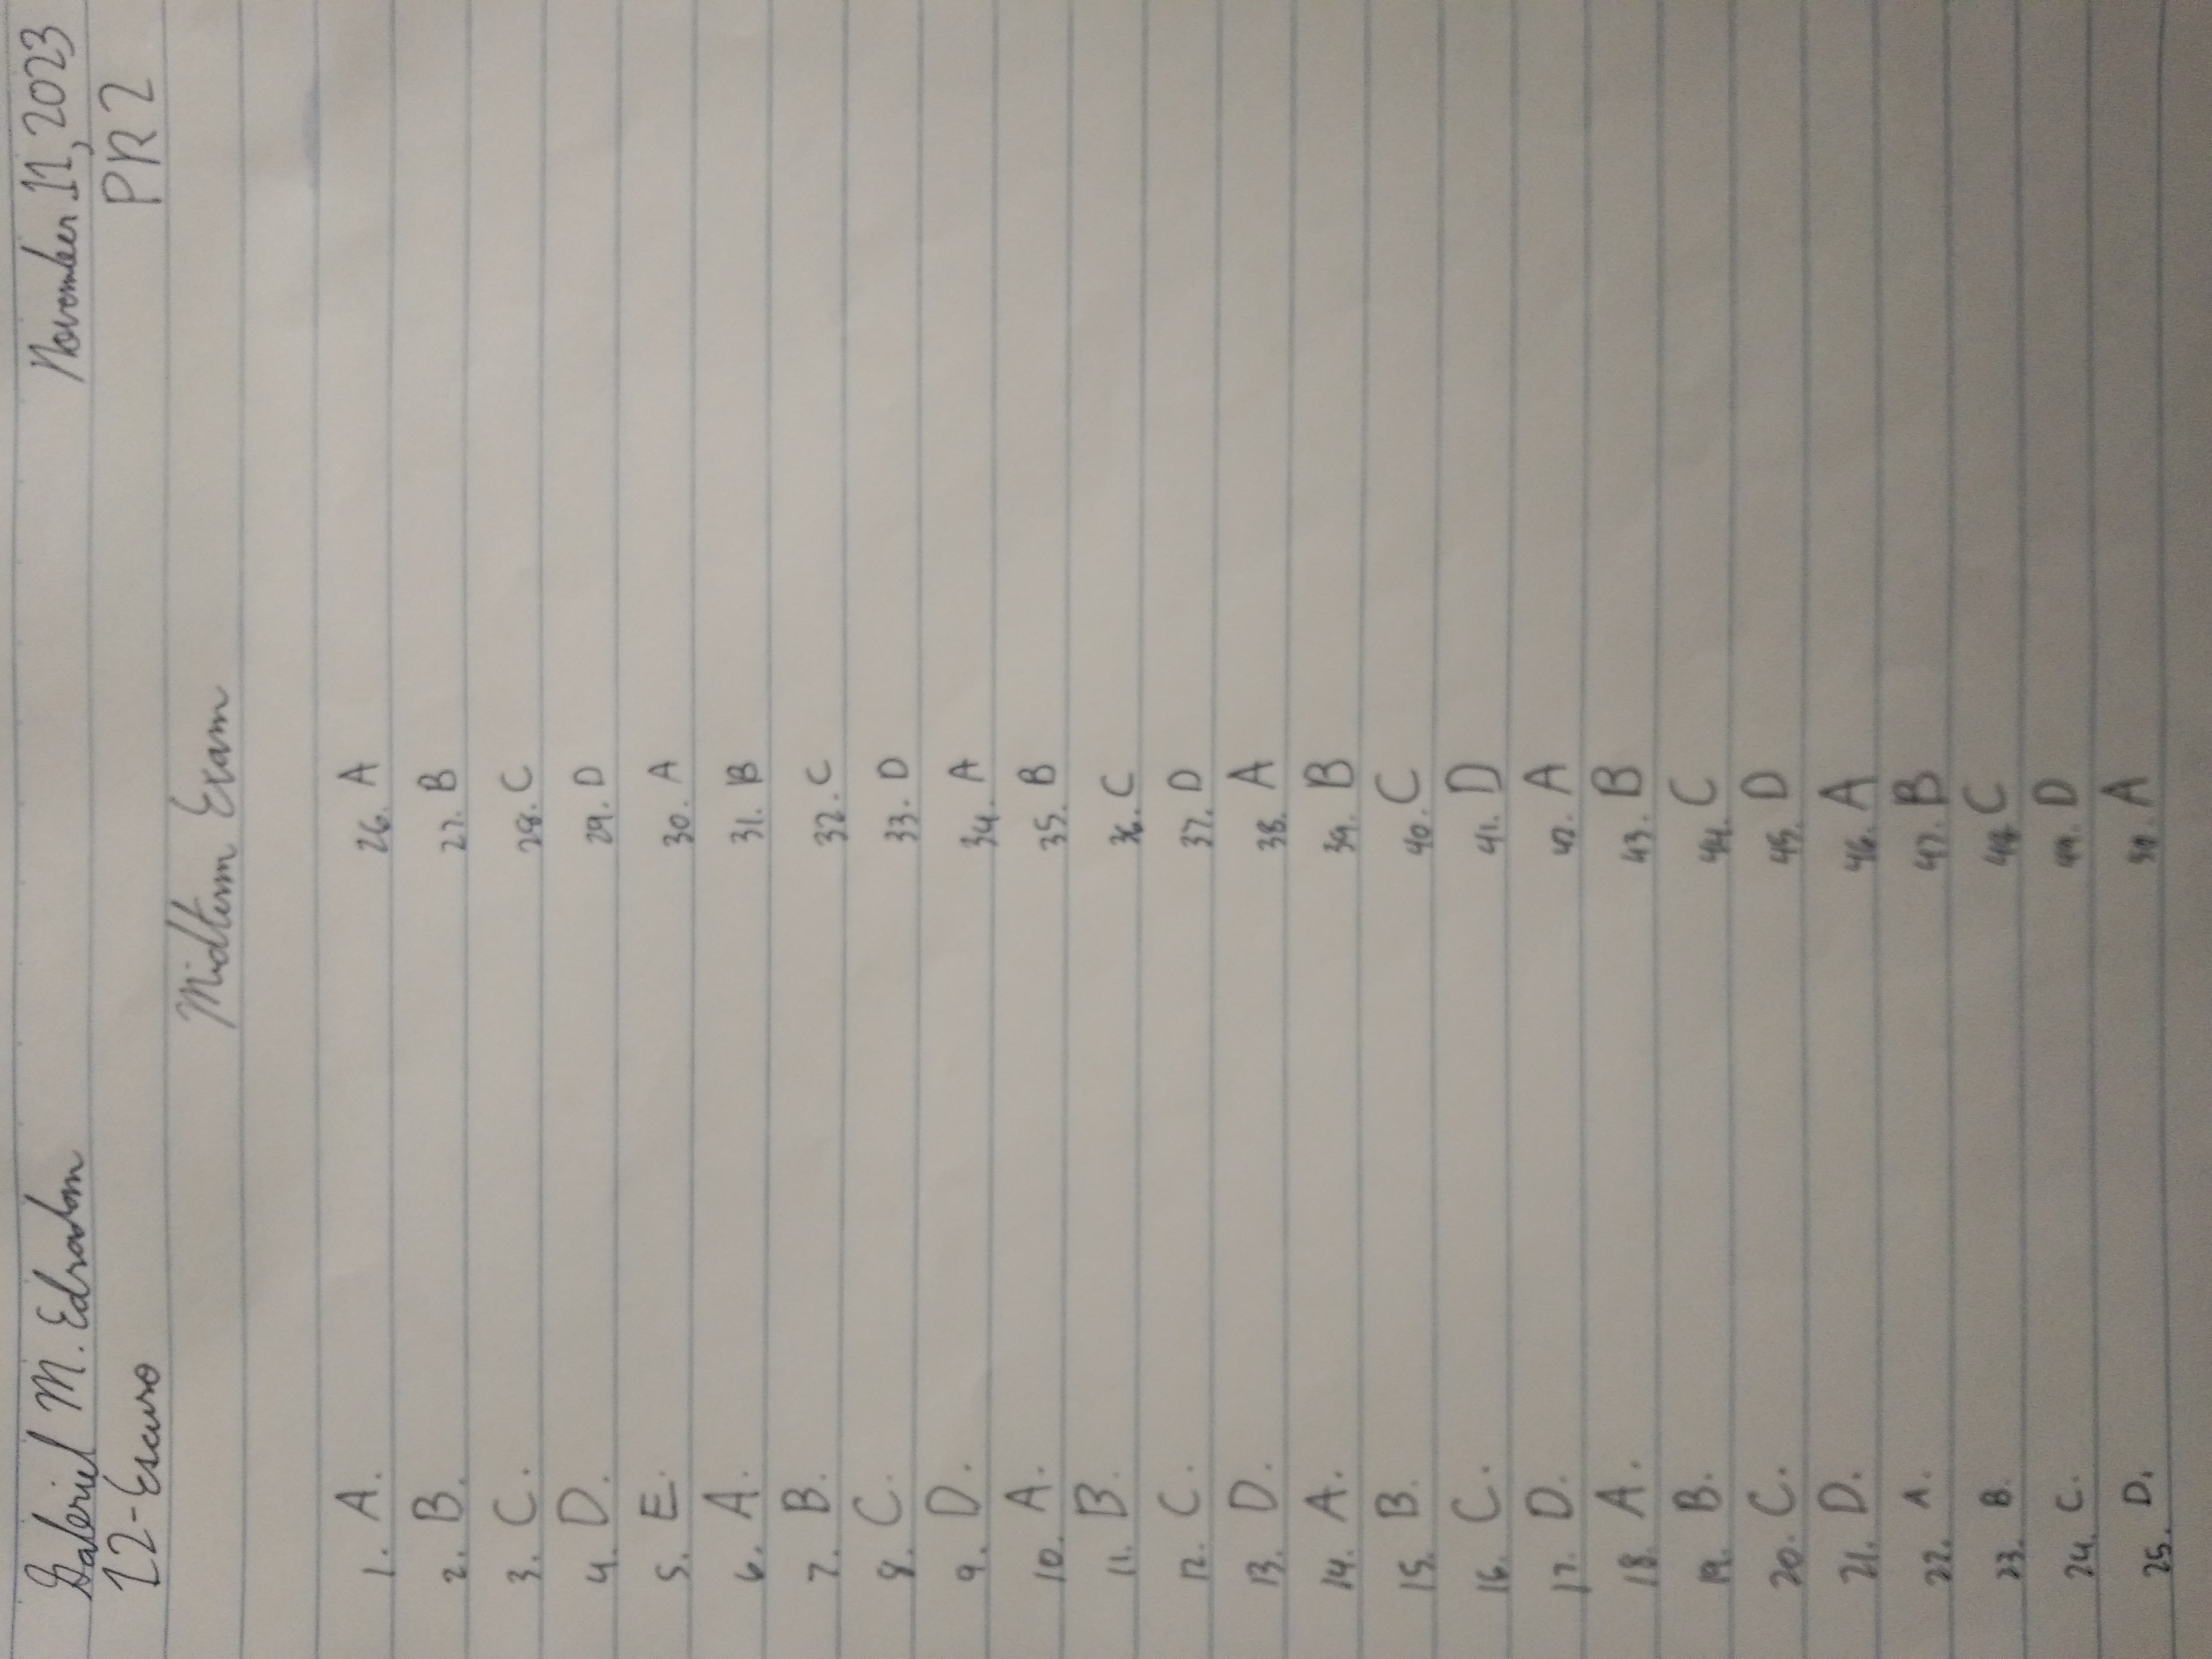 Gabriel M. Edradan
November 11, 2023
12-Escuro
PR 2
Midterm Exam
1. A.
2. B.
3. C.
4. D.
5. E.
6. A.
7. B.
8. C.
9. D.
10. A.
11. B.
12. C.
13. D.
14. A.
15. B.
16. C.
17. D.
18. A.
19. B.
20. C.
21. D.
22. A.
23. B.
24. C.
25. D.
26. A
27. B
28. C
29. D
30. A
31. B
32. C
33. D
34. A
35. B
36. C
37. D
38. A
39. B
40. C
41. D
42. A
43. B
44. C
45. D
46. A
47. B
48 C
49. D
50. A